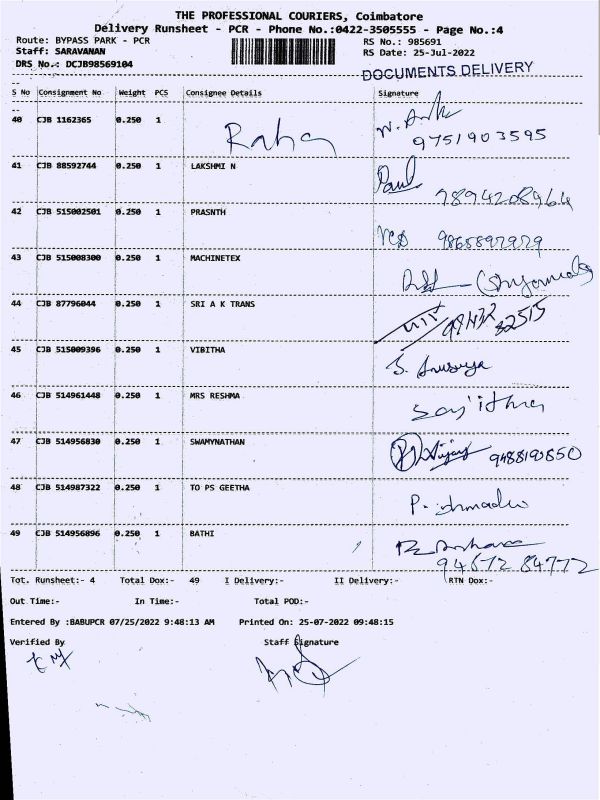 THE PROFESSIONAL COURIERS, Coimbatore
Delivery Runsheet - PCR - Phone No.:0422-3505555 - Page No.:4
Route: BYPASS PARK - PCR
RS No.: 985691
Staff: SARAVANAN
RS Date: 25-Jul-2022
DRS No.: DCJB98569104
DOCUMENTS DELIVERY
S No Consignment No Weight PCS Consignee Details Signature
40 CJB 1162365 0.250 1
9751903595
41 CJB 88592744 0.250 1 LAKSHMI N Paul
7894208964
42 CJB 515002501 0.250 1 PRASNTH
43 CJB 515008300 0.250 1 MACHINETEX
44 CJB 87796044 0.250 1 SRI A K TRANS
45 CJB 515009396 0.250 1 VIBITHA S. Anusuya
46 CJB 514961448 0.250 1 MRS RESHMA
47 CJB 514956830 0.250 1 SWAMYNATHAN
48 CJB 514987322 0.250 1 TO PS GEETHA
49 CJB 514956896 0.250 1 BATHI
94672 84772
Tot. Runsheet:- 4 Total Dox:- 49 I Delivery:- II Delivery:- RTN Dox:-
Out Time:- In Time:- Total POD:-
Entered By :BABUPCR 07/25/2022 9:48:13 AM Printed On: 25-07-2022 09:48:15
Verified By Staff Signature